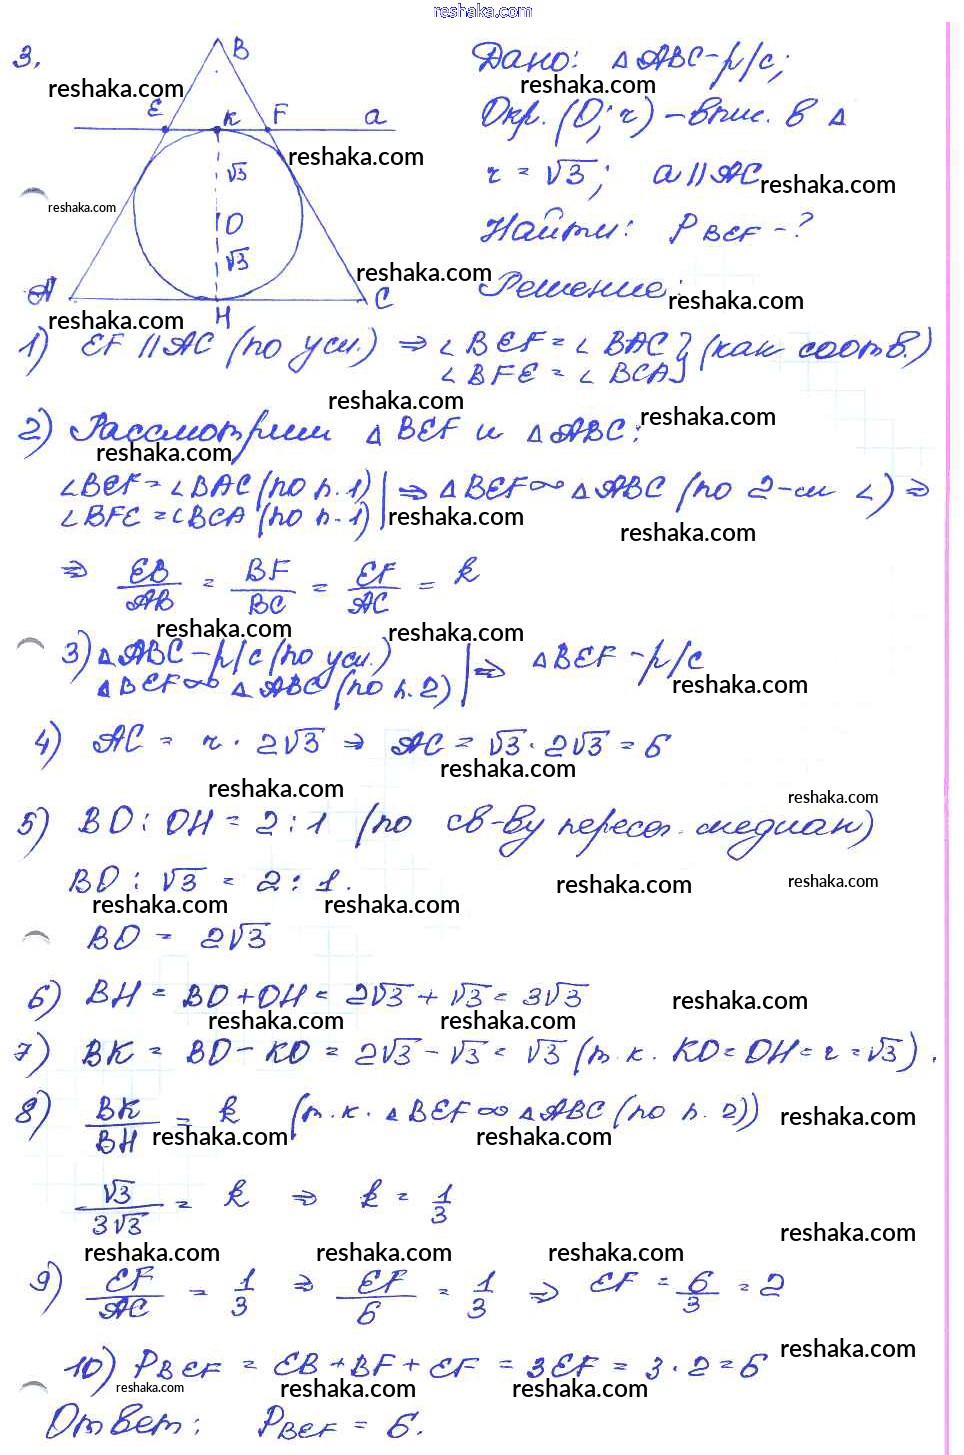 reshaka.com
3.
B
E K F a
√3
O
√3
A H C
Дано: △ABC - р/с;
Окр. (O; r) - впис. в △
r = √3; a || AC
Найти: P_BEF - ?
Решение:
1) EF || AC (по усл.) ⇒ ∠BEF = ∠BAC } (как соотв.)
∠BFE = ∠BCA }
2) Рассмотрим △BEF и △ABC:
∠BEF = ∠BAC (по п. 1) | ⇒ △BEF ∞ △ABC (по 2-м ∠) ⇒
∠BFE = ∠BCA (по п. 1) |
⇒ EB/AB = BF/BC = EF/AC = k
3) △ABC - р/с (по усл.) | ⇒ △BEF - р/с
△BEF ∞ △ABC (по п. 2) |
4) AC = r · 2√3 ⇒ AC = √3 · 2√3 = 6
5) BO : OH = 2 : 1 (по св-ву пересеч. медиан)
BO : √3 = 2 : 1.
BO = 2√3
6) BH = BO + OH = 2√3 + √3 = 3√3
7) BK = BO - KO = 2√3 - √3 = √3 (т. к. KO = OH = r = √3).
8) BK/BH = k (т.к. △BEF ∞ △ABC (по п. 2))
√3/3√3 = k ⇒ k = 1/3
9) EF/AC = 1/3 ⇒ EF/6 = 1/3 ⇒ EF = 6/3 = 2
10) P_BEF = EB + BF + EF = 3EF = 3 · 2 = 6
Ответ: P_BEF = 6.